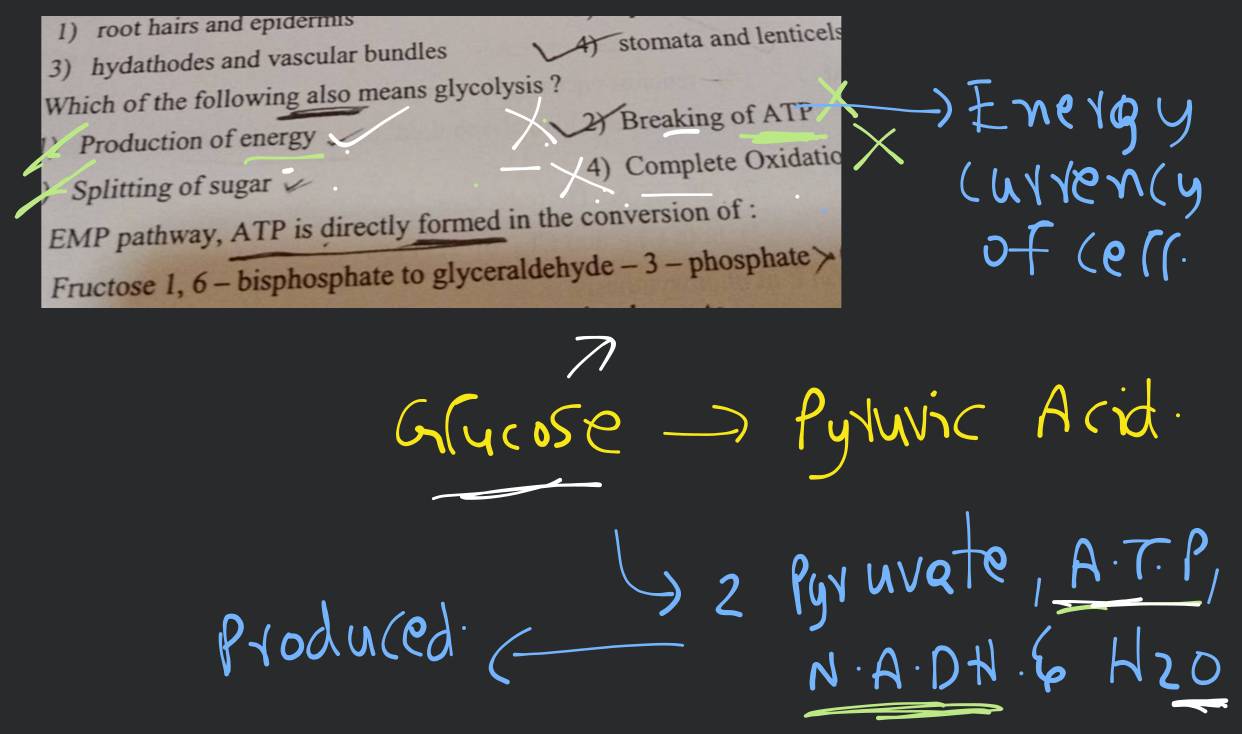 1) root hairs and epidermis
3) hydathodes and vascular bundles 4) stomata and lenticels
Which of the following also means glycolysis ?
Production of energy 2) Breaking of ATP
Splitting of sugar 4) Complete Oxidatio
EMP pathway, ATP is directly formed in the conversion of :
Fructose 1, 6 – bisphosphate to glyceraldehyde – 3 – phosphate
Energy
currency
of cell.
Glucose → Pyruvic Acid.
2 Pyruvate, A.T.P,
N.A.DH.& H2O
Produced.